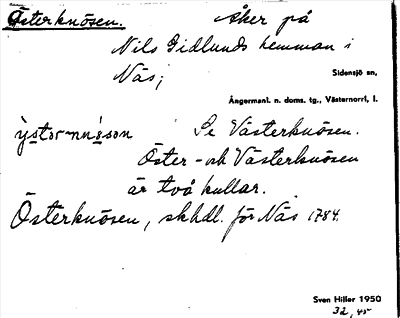 Österknösen. Åker på
Nils Gidlunds hemman i
Näs;
Sidensjö sn,
Ångermanl. n. doms. tg., Västernorrl. l.
Se Västerknösen.
Öster- och Västerknösen
är två kullar.
Österknösen, skhdl. för Näs 1784.
Sven Hiller 1950
32, 45